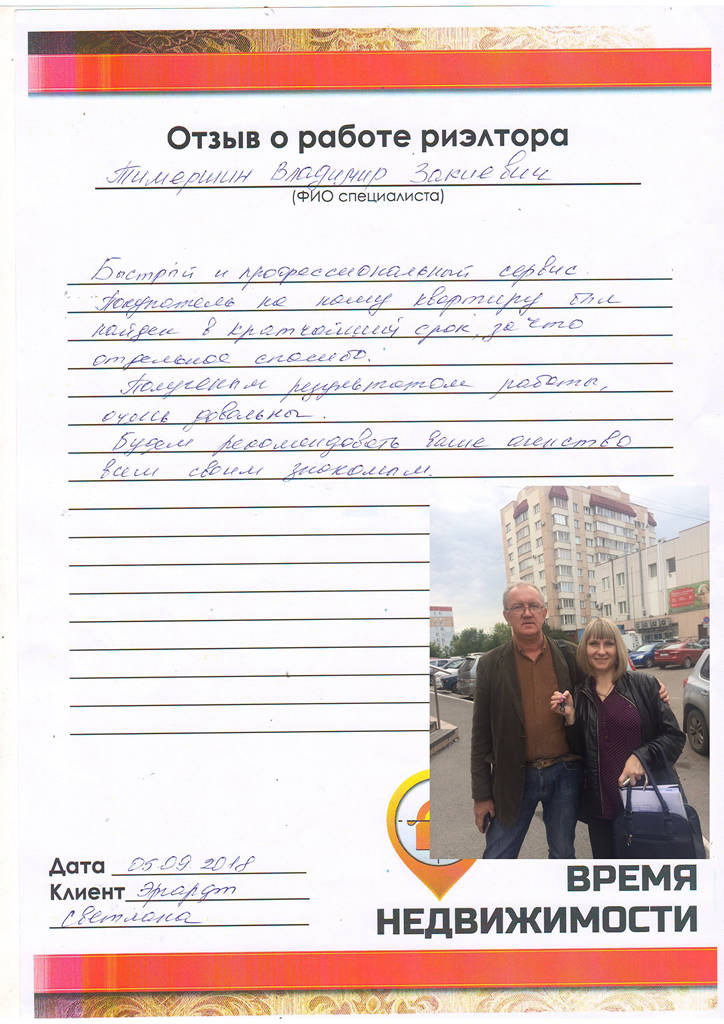 Отзыв о работе риэлтора
Тимершин Владимир Закиевич
(ФИО специалиста)
Быстрый и профессиональный сервис.
Покупатель на нашу квартиру был
найден в кратчайший срок, за что
отдельное спасибо.
Полученым результатом работы,
очень довольны.
Будем рекомендовать Ваше агенство
всем своим знакомым.
Дата 05.09.2018
Клиент Эргардт
Светлана
ВРЕМЯ
НЕДВИЖИМОСТИ